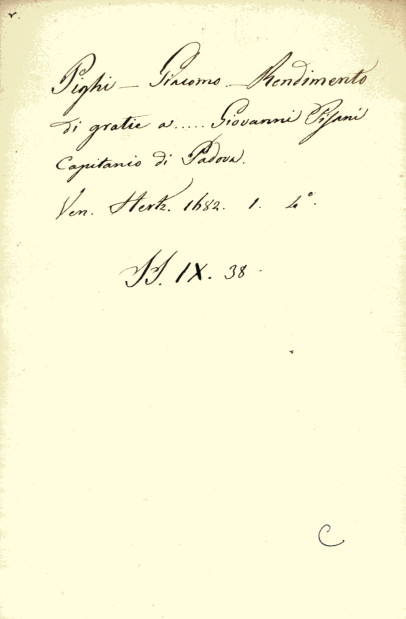 Pighi – Giacomo – Rendimento
di gratie a ..... Giovanni Pisani
Capitanio di Padova.
Ven. Hertz. 1682. 1. 4°.
SS. IX. 38.
C